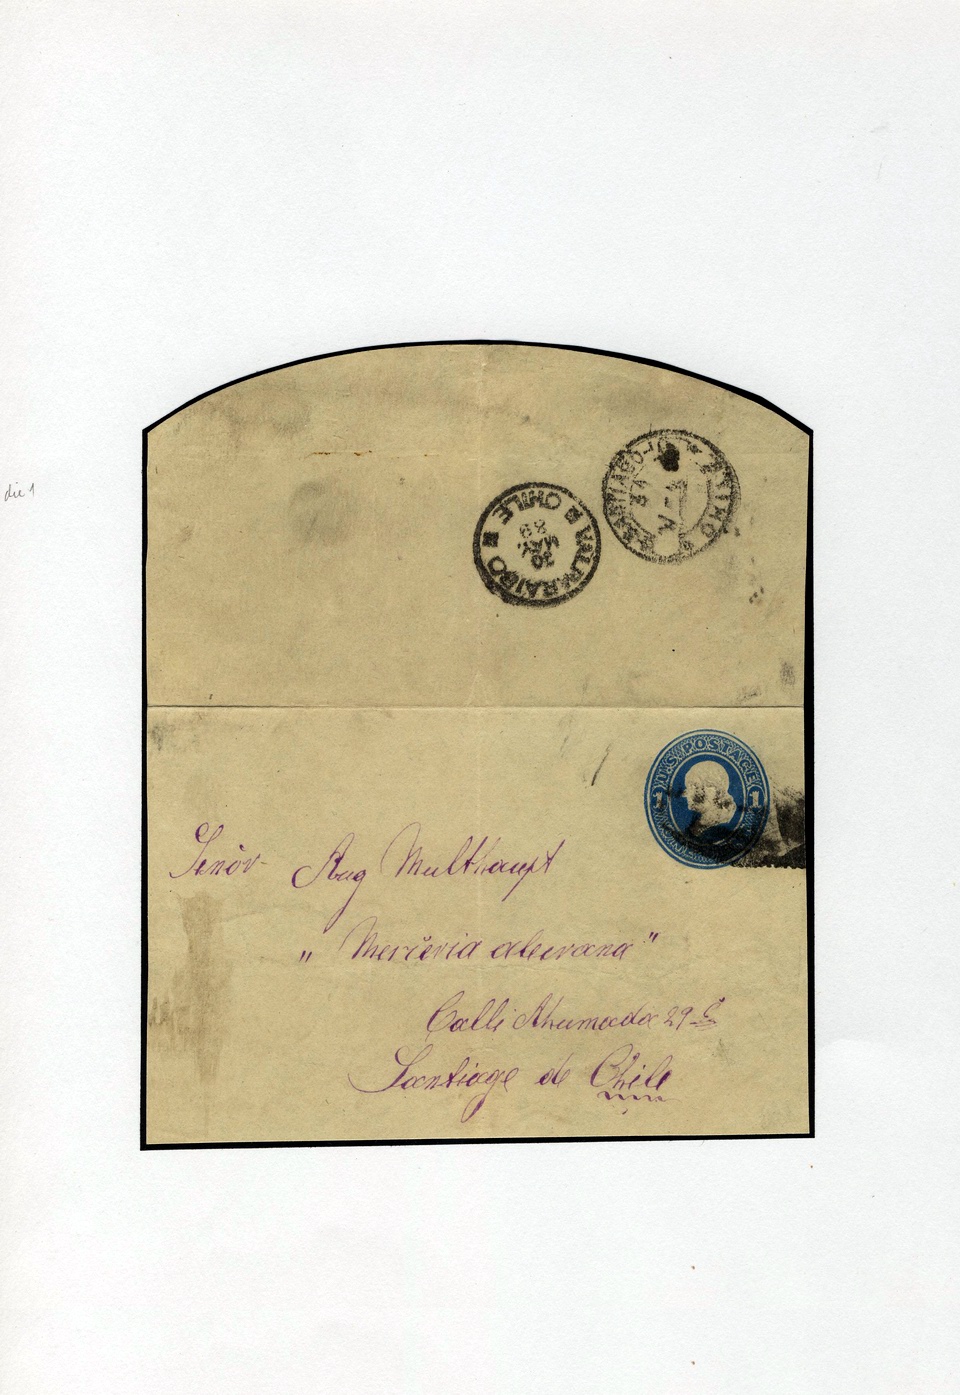 die 1
CHILE
VALPARAISO
20
MAY.
89
SANTIAGO
U.S. POSTAGE
1 1
Senór Aug Multhaupt
„ Mercería alemana "
Calle Ahumada 29
Santiago de Chile